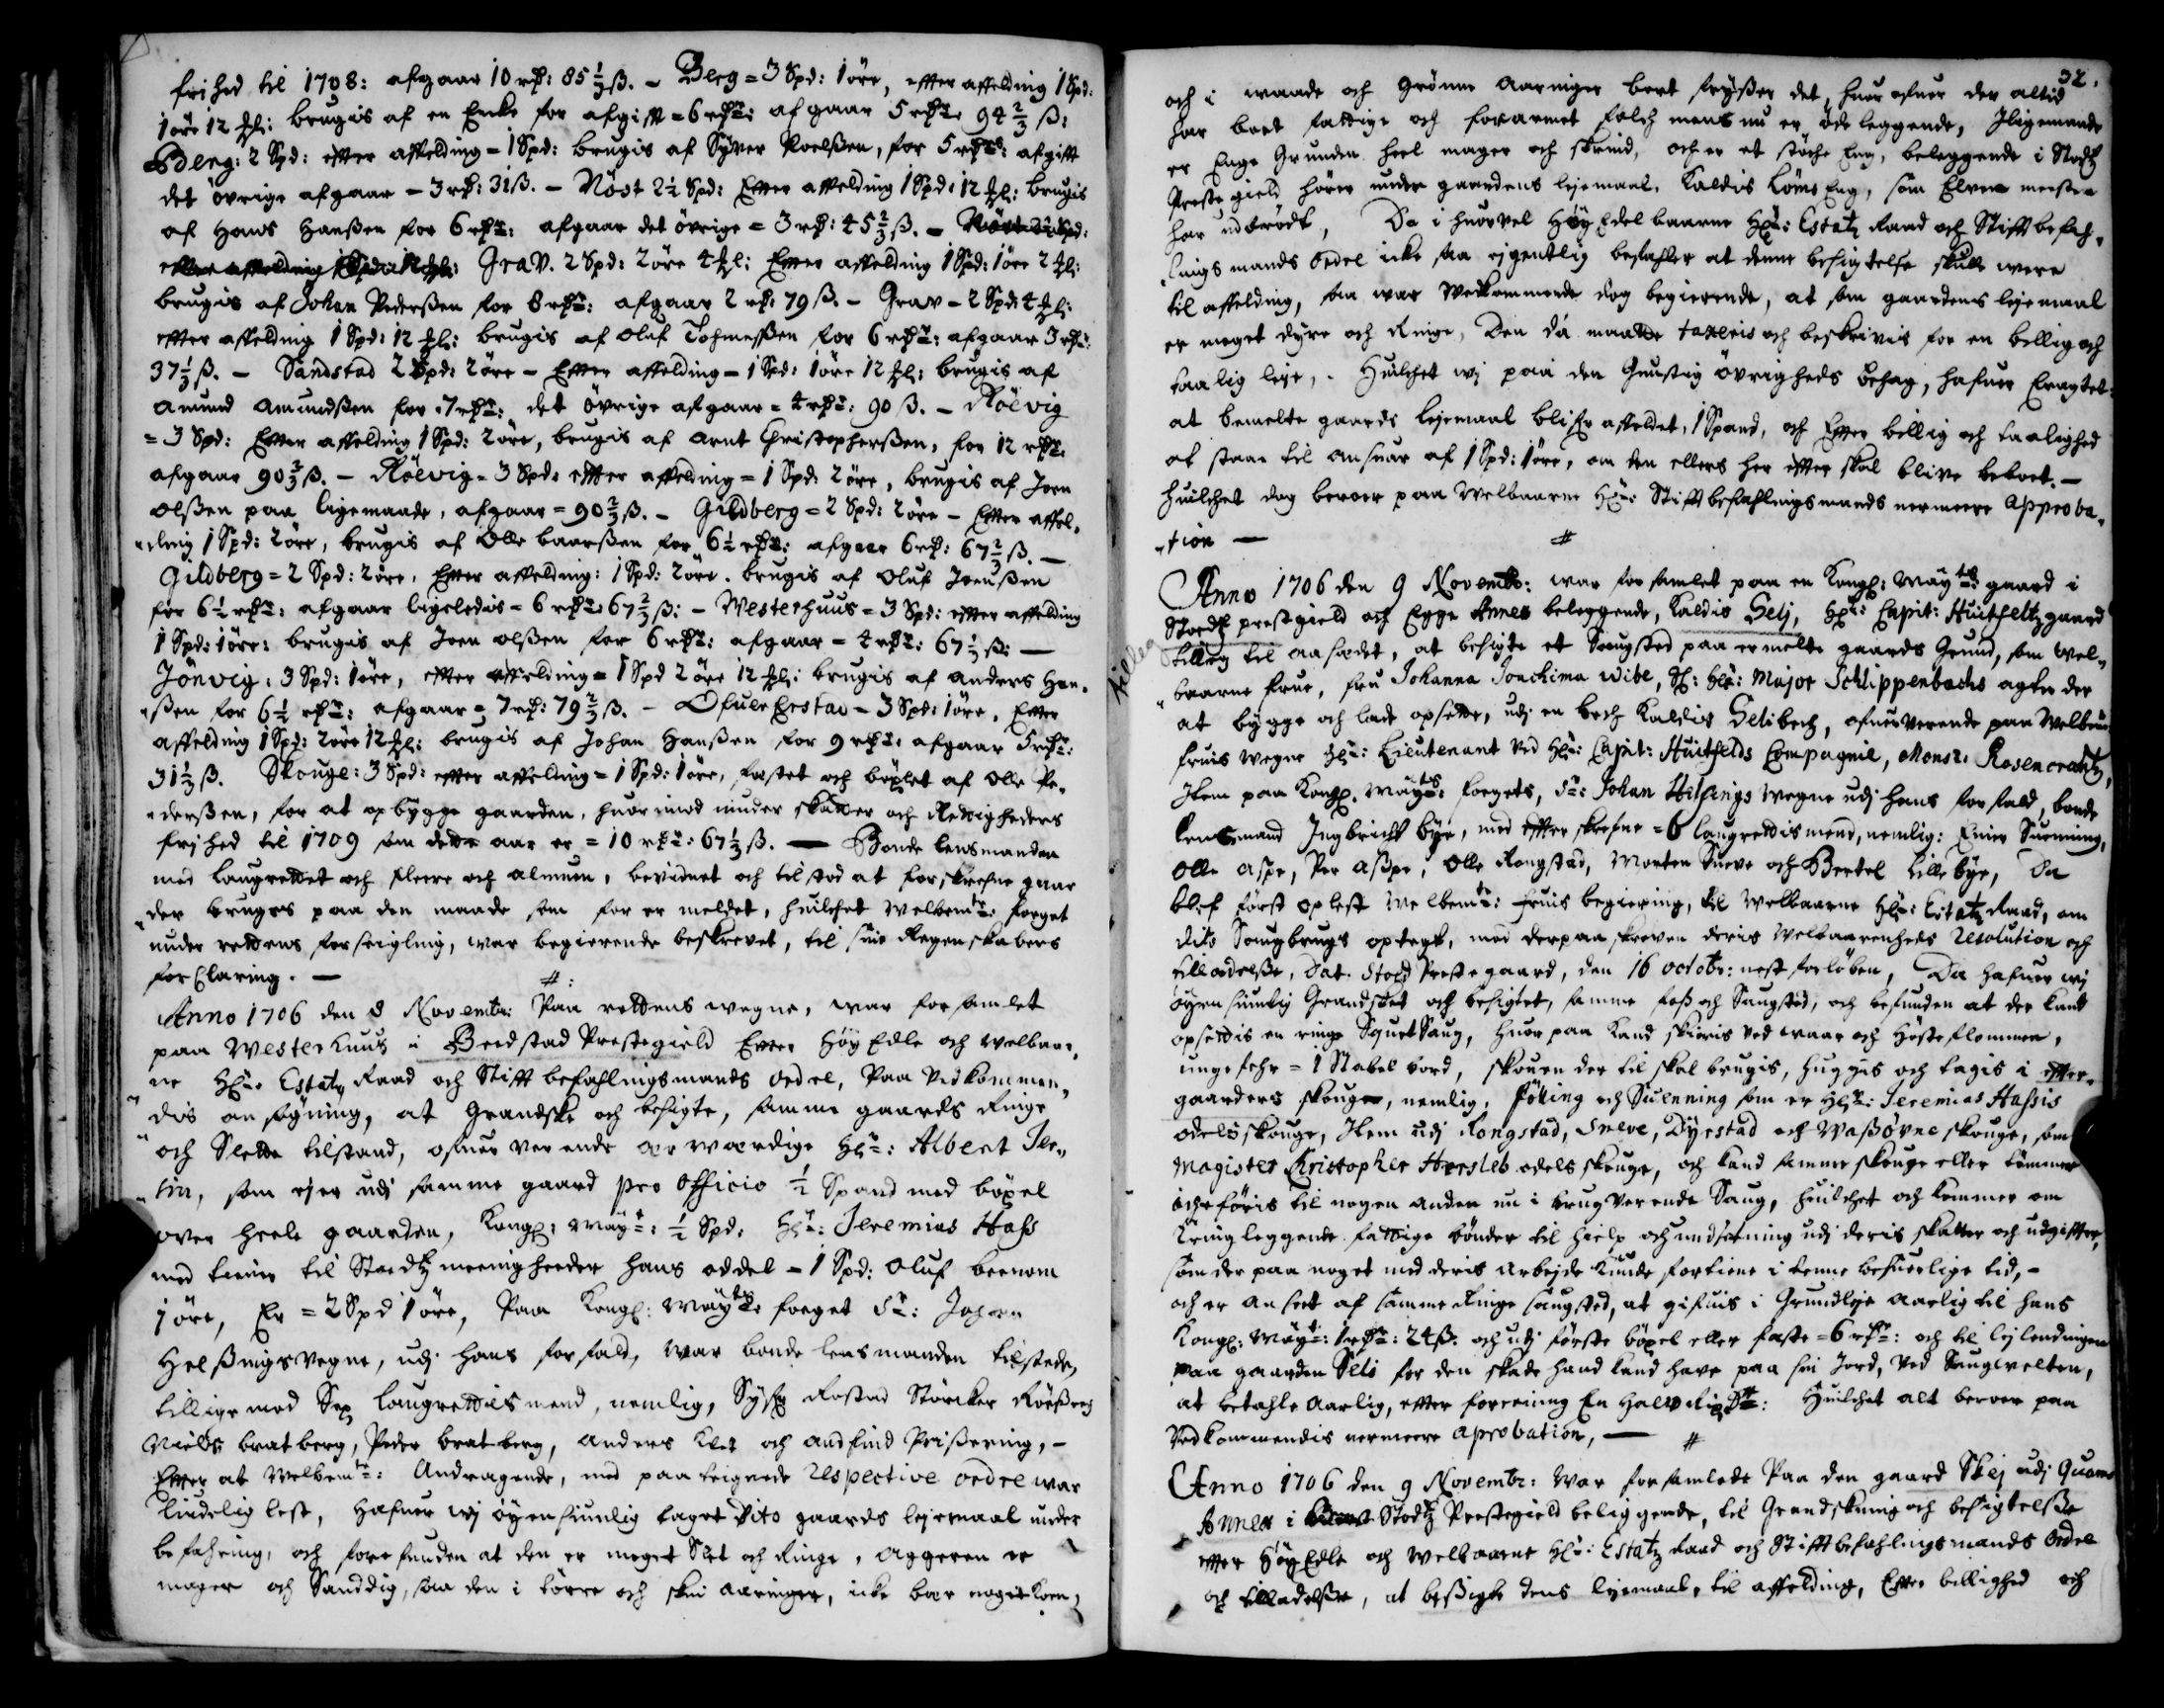 frihed til 1708: afgaar 10 rd: 85 1/3 ß. – Berg = 3 Spd: 1 öre, effter affelding 1 Spd:
1 öre 12 : brugis af en Encke for afgifft = 6 rdr: afgaar 5 rdr: 94 2/3 ß:
Berg: 2 Spd: effter affelding = 1 Spd: brugis af Syver Poelßen, for 5 rdr: afgifft
det övrige afgaar – 3 rd: 31 ß. – Nöst 2 1/2 Spd: Effter affelding 1 Spd: 12 : brugis
af Hans Hanßen for 6 rdr: afgaar det övrige = 3 rd: 45 2/3 ß. –
Grav. 2 Spd: 2 öre 4 : Effter affelding 1 Spd: 1 öre 2 :
brugis af Johan Pederßen for 8 rdr: afgaar 2 rd: 79 ß. – Grav – 2 Spd: 4 :
effter affelding 1 Spd: 12 : brugis af Oluf for 6 rdr: afgaar 3 rdr:
37 1/3 ß. – Sandstad 2 Spd: 2 öre – Effter affelding – 1 Spd: 1 öre 12 : brugis af
Amund Amundßen for 7 rdr: det övrige afgaar = 4 rdr: 90 ß. – Röevig
= 3 Spd: Effter affelding 1 Spd: 2 öre, brugis af Arnt Christopherßen, for 12 rdr:
afgaar 90 2/3 ß. – Röevig = 3 Spd: effter affelding = 1 Spd: 2 öre, brugis af Joen
Olßen paa ligemaade, afgaar = 90 2/3 ß. – Gildberg = 2 Spd: 2 öre – Effter affel,
ding 1 Spd: 2 öre, brugis af Olle Baarßen for 6 1/2 rdr: afgaar 6 rd: 67 2/3 ß. –
Gildberg = 2 Spd: 2 öre, Effter affelding: 1 Spd: 2 öre. brugis af Oluf
for 6 1/2 rdr: afgaar ligeledis = 6 rdr: 67 2/3 ß: – Westerhuus = 3 Spd: effter affelding
1 Spd: 1 öre: brugis af Joen Olßen for 6 rdr: afgaar = 4 rdr: 67 1/3 ß: –
Jönvig: 3 Spd: 1 öre, effter affelding = 1 Spd 2 öre 12 : brugis af Anders Han,
ßen for 6 1/2 rdr: afgaar = 7 rd: 79 2/3 ß. – Ofuer Erstav – 3 Spd: 1 öre, Effter
affelding 1 Spd: 2 öre 12 : brugis af Johan Hanßen for 9 rdr: afgaar 5 rdr:
31 1/3 ß. Skouge: 3 Spd: effter affelding = 1 Spd: 1 öre, fæstet och böxlet af Olle Pe,
derßen, for at opbygge gaarden, huorimod under skatter och Rettigheders
frihed til 1709 som dette aar er = 10 rdr: 67 1/3 ß. – Bonde lensmanden
med Laugrettet och fleere och almuen, bevidnet och tilstod at forskrefne gaar
der bruges paa den maade som for er meldet, huilchet Welbemte: foeget
under rettens forseigling, war begierende beskrevet, til sine Regenskabers
forClaring. –
#:
Anno 1706 den 8 Novembr: Paa rettens wegne, war forsamlet
paa Westerhuus i Beedstad Prestegield Effter Höy Edle och Welbaar,
ne Hr: Estatz Raad och Stifftbefahlingsmands ordre, Paa Vedkommen,
dis ansögning, at Grandske och besigte, samme gaards Ringe
och Slette tilstand, ofuerverende ærwærdige Hr: Albert Jer,
sin, som ejer udj samme gaard pro officio 1/2 Spand med böxel
over heele gaarden, Kongl: Mayt: 1/2 Spd: Hr: Jeremias Hass
med til Stordtz meenigheeder hans oddel – 1 Spd: Oluf beenom
1 öre, Er = 2 Spd 1 öre, Paa Kongl: Maytts: foeget Sr: Johan
Helßings Vegne, udj hans forfald, war bonde lensmanden tilstede,
tillige med Sex Laugrettismend, nemlig, Rostad Störcker Röeßeng
Niels bratberg, Peder bratberg, Anders och Andfind Prißering, –
Effter at Welbemte: Andragende, med paateignede respective ordre war
liudelig lest, Hafuer wj öyensiunlig taget Dito gaards lejemaal under
befahring, och forefunden at den er meget Slet och Ringe, Aggeren er
mager och Sanddig, saa den i törre och skin aaringer, icke bær noget Korn,
32.
och i waade och Grönne aaringer bort fryßer det, huor ofuer der altid
har boed fattige och forarmet folch mens nu er öde leggende, Iligemaade
er Enge Grunden heel mager och skrind, och er et støche Eng, beleggende i Stodtz
Prestegield hörer under gaardens lejemaal. Kaldis Löms Eng, som Elven meesten
har udbrödt, Da i huorvel Höy Edel baarne Hr: Estatz Raad och Stifft befah,
lings mands ordre icke saa ejgentlig befahler at denne besigtelse skulle were
til affelding, saa war Wedkommende dog begierende, at som gaardens lejemaal
er meget dyre och Ringe, Den da maatte taxeris och beskrivis for en billig och
taalig leje, Huilchet wj paa den Gunstig övrigheds behag, hafuer Eragtet:
at bemelte gaards lejemaal blifer affeldet, 1 Spand, och Effter billig och taalighed
at staae til Ansuar af 1 Spd: 1 öre, om den ellers her effter skal blive beboet. –
Huilchet dog beroer paa Welbaarne Hr: Stifft befahlings mands nermeere Approba,
tion – #
Anno 1706 den 9 Novembr: war forsamlet paa en Kongl: Maytts: gaard i
Stordtz prestgield och Egge Annex beleggende, Kaldis Selj, Hr: Capit: Huitfeltz gaard
tilleg til aasædet, at besigte et Saugsted paa ermelte gaards Grund, som Wel,
baarne frue, fru Johanna Joachima Wibe, Sl: Hr: Major Schlippenbachs agter der
at bygge och lade opsette, udj en bech Kaldis Selibech, ofuerverende paa Welbrne
fruis wegne Hr: Lieutenant ved Hr: Capit: Huitfelds Compagnie, Monsr. Rosencrantz,
Item paa Kongl. Maytts: foegets, Sr: Johan Helßings Wegne udj hans forfald, bonde
lensmand Ingbricht bye, med effterskrefne = 6 laugrettismend, nemlig: Einer Suenning,
Olle Aspe, Per Aßpe, Olle Rongstad, Morten Sneve och Bertel Lillebye, Da
blef först oplest Welbemte: fruis begiering, til Welbaarne Hr: Estatz Raad, om
dito Saugbrugs optegt, med derpaa skreven deris Welbaarenheds resolution och
tilladelße, Dat. Stod Prestegaard, den 16 octobr: nest forlöben, Da hafuer wj
öyensiunlig Grandsket och besigtet, samme foß och Saugsted, och befunden at der kand
opsettis en ringe Squet Saug, huor paa Kand skieris ved waar och Höste flommen,
ungefehr = 1 Stabel bord, skouen der til skal brugis, huggis och tagis i effter,
gaarders skouge, nemlig, Föling och Suenning som er Hr: Jeremias Hassis
odelsskouge, Item udj Rongstad, Sneve, Dyrstad och Waßövne skouge, som
Magister Christopher Hersleb odels skouge, och kand samme skouge eller tömmer
iche föris til nogen anden nu i brugverende Saug, huilchet och kommer om
Kringleggende fattige bönder til hielp och undsetning udj deris skatter och udgiffter,
som der paa noget med deris arbejde Kunde fortiene i denne besuerlige tid, –
och er anseet af samme Ringe saugsted, at gifuis i Grundleje aarlig til hans
Kongl: Mayt: 1 rdr: 24 ß. och udj förste böxel eller fæste = 6 rdr: och til lejlendingen
paa gaarden Seli for den skade hand kand have paa sin Jord, Ved Saugwelten,
at betahle aarlig, effter foreening En Halv Rixdr: Huilchet alt beroer paa
Vedkommendis nermeere aprobation, – #
Anno 1706 den 9 Novembr: war forsamlede Paa den gaard Skej udj Quams
Annex i Stodtz Prestegield beliggende, til Grandskning och besigtelße
effter Höy Edle och Welbaarne Hr: Estatz Raad och Stifft befahlingsmands Ordre
och tilladelße, at beßigte dens lejemaal, til affelding, Effter billighed och